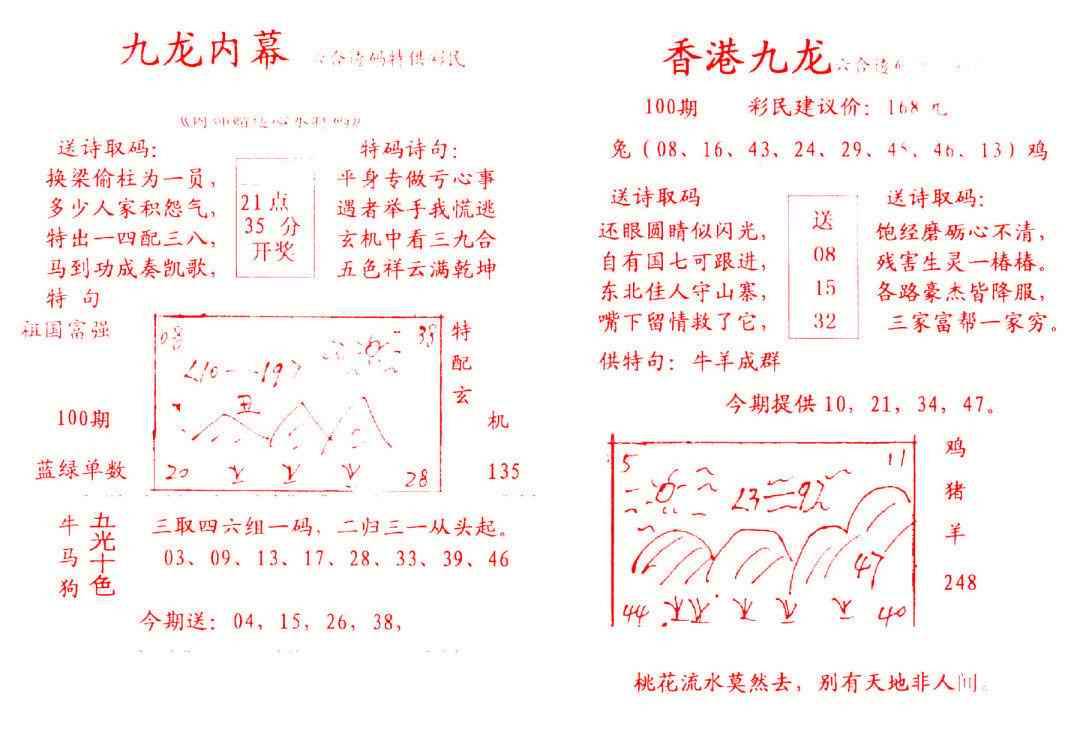 九龙内幕
送诗取码：
换梁偷柱为一员，
多少人家积怨气，
特出一四配三八，
马到功成奏凯歌，
特 句
祖国富强
21点
35 分
开奖
特码诗句：
平身专做亏心事
遇者举手我慌逃
玄机中看三九合
五色祥云满乾坤
100期
蓝绿单数
08
33
丑
20
28
特
配
玄
机
135
牛
马
狗
五光十色
三取四六组一码，二归三一从头起。
03、09、13、17、28、33、39、46
今期送：04，15，26，38，
香港九龙
100期 彩民建议价：168元
兔（08、16、43、24、29、45、46、13）鸡
送诗取码
还眼圆睛似闪光，
自有国七可跟进，
东北佳人守山寨，
嘴下留情救了它，
送
08
15
32
送诗取码：
饱经磨砺心不清，
残害生灵一椿椿。
各路豪杰皆降服，
三家富帮一家穷。
供特句：牛羊成群
今期提供10，21，34，47。
5
11
47
44
40
鸡
猪
羊
248
桃花流水莫然去，别有天地非人间。